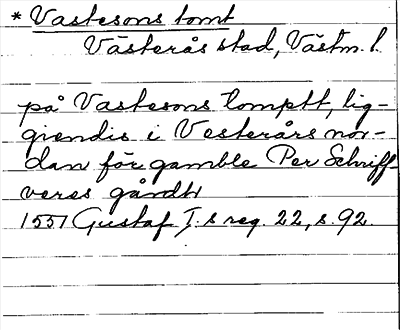 * Vastesons tomt
Västerås stad, Västm. l.
på Vastesons tomptt, lig-
giendis i Vesterårs nor-
dan för gamble Per Schriff-
veres gårdh
1551 Gustaf I:s reg. 22, s. 92.